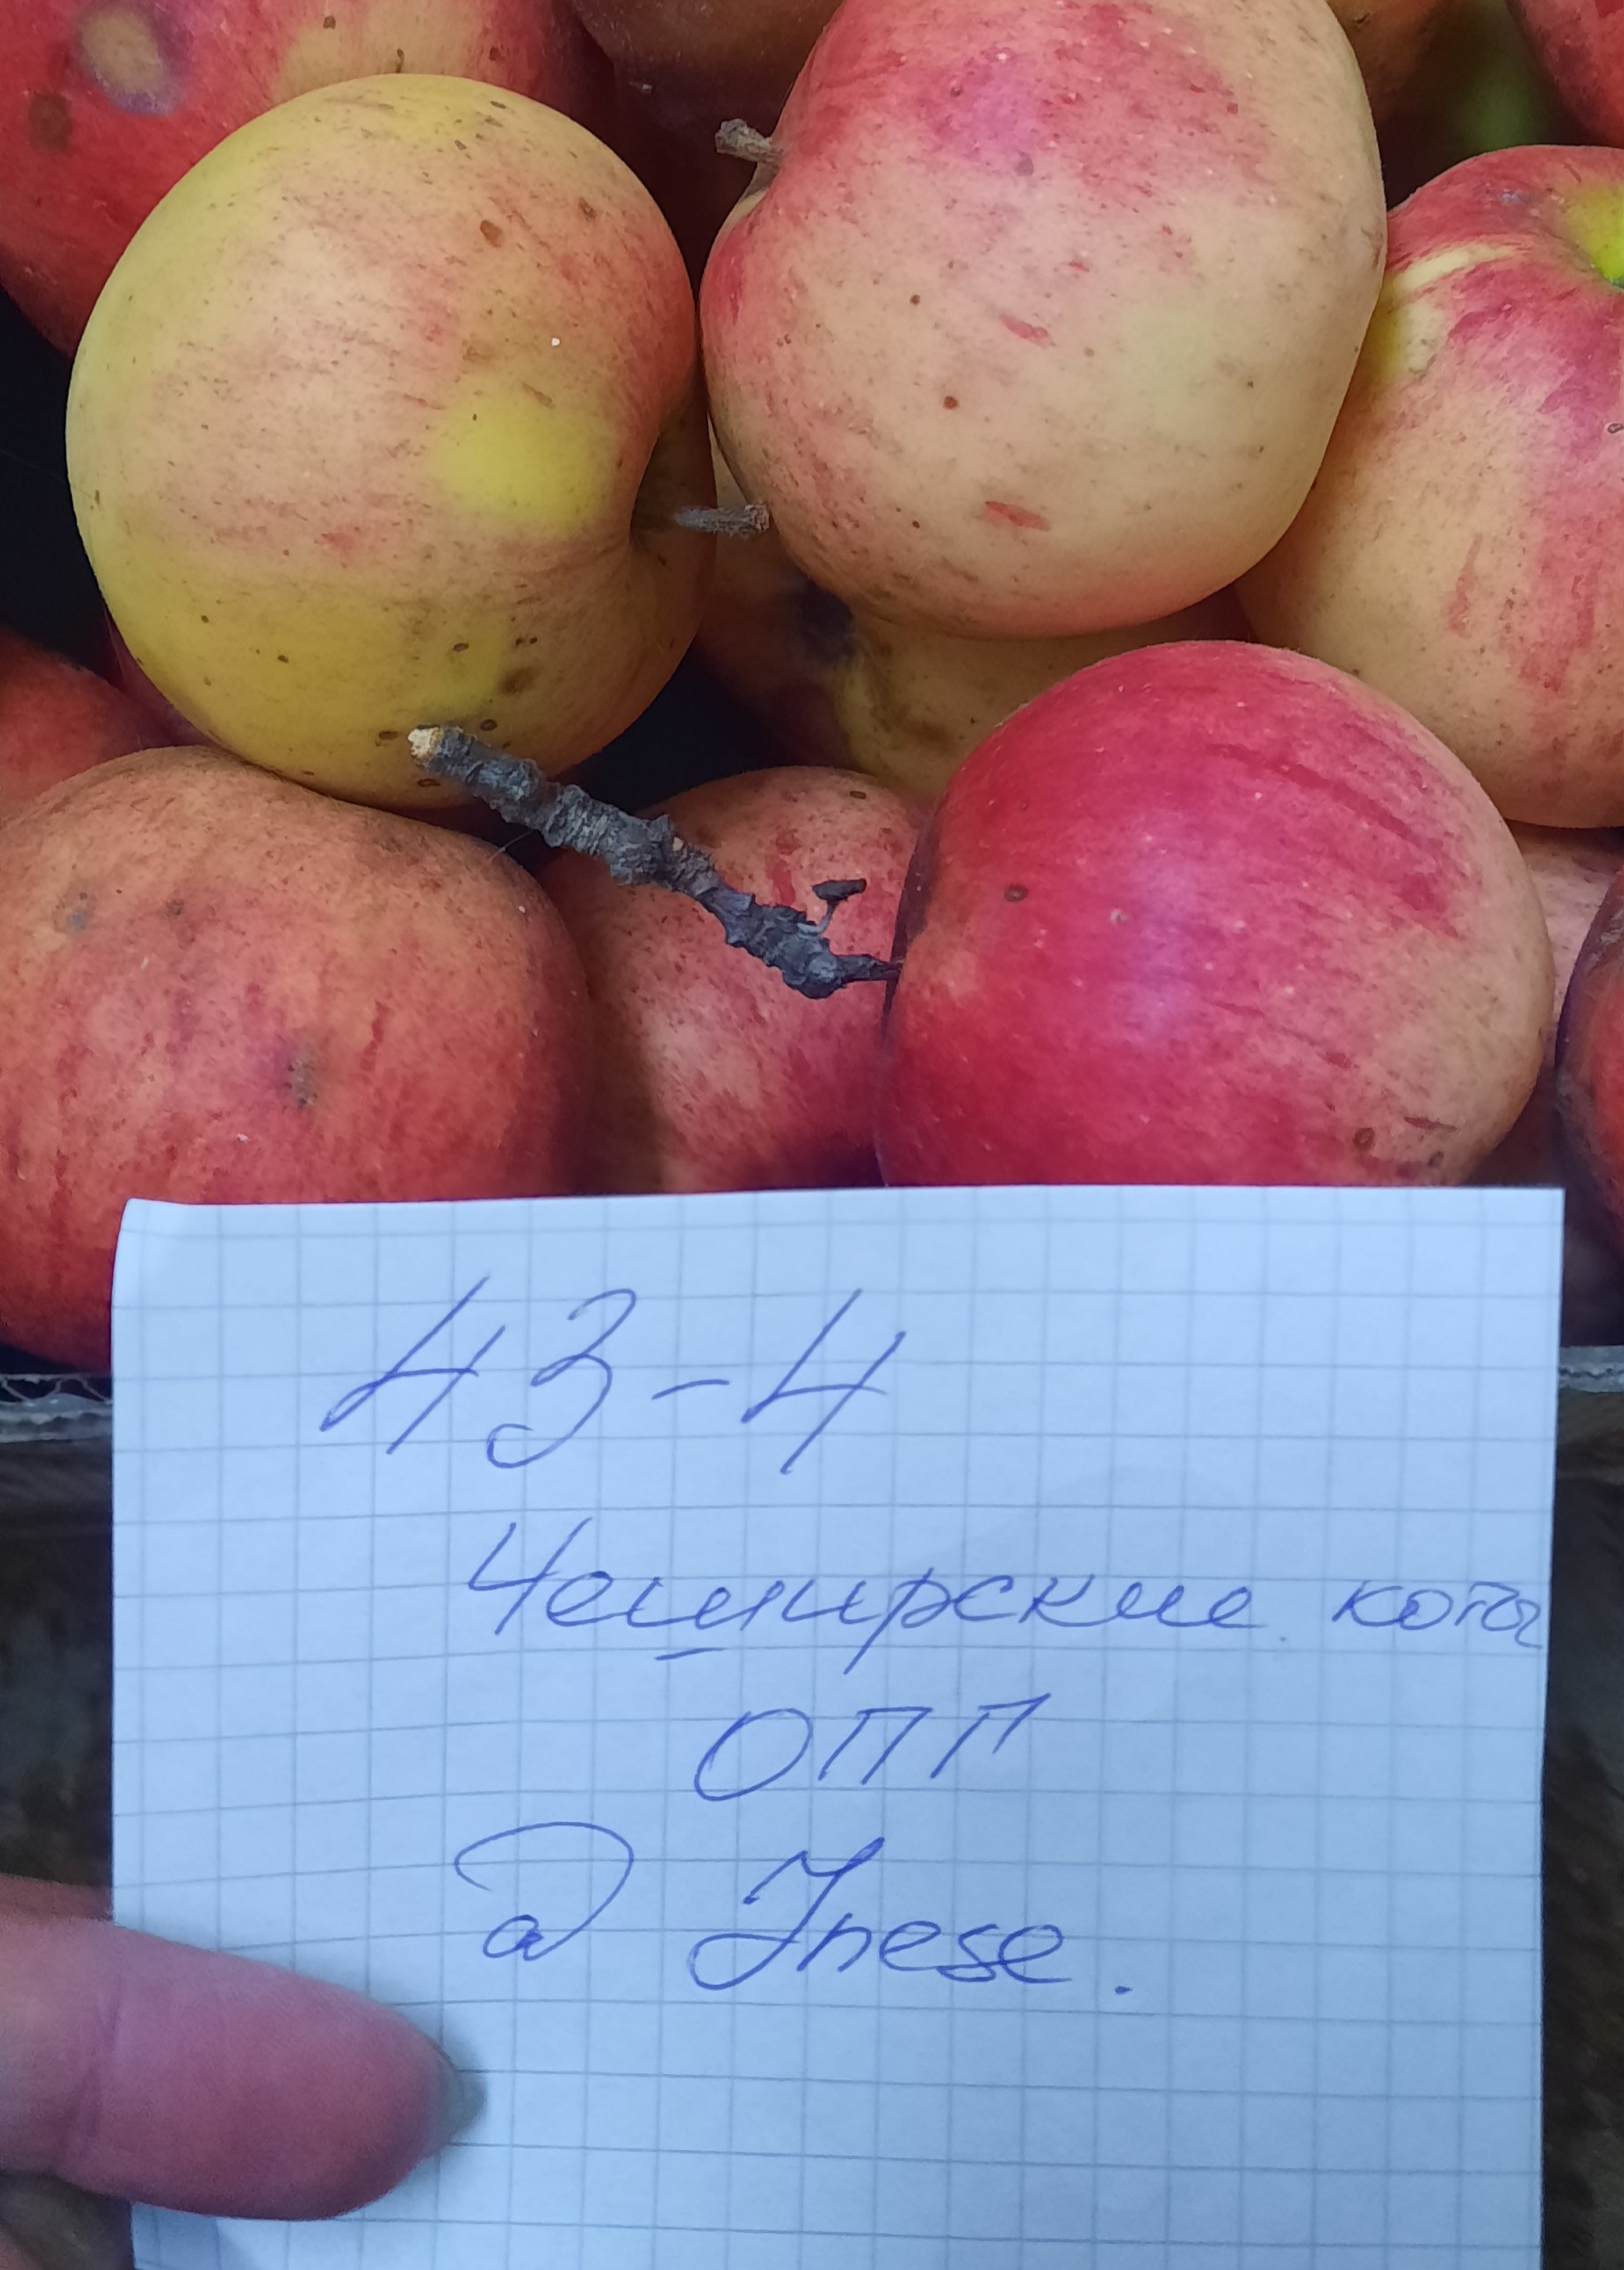 43-4
Чеширские коты
ОПГ
@ Inese.